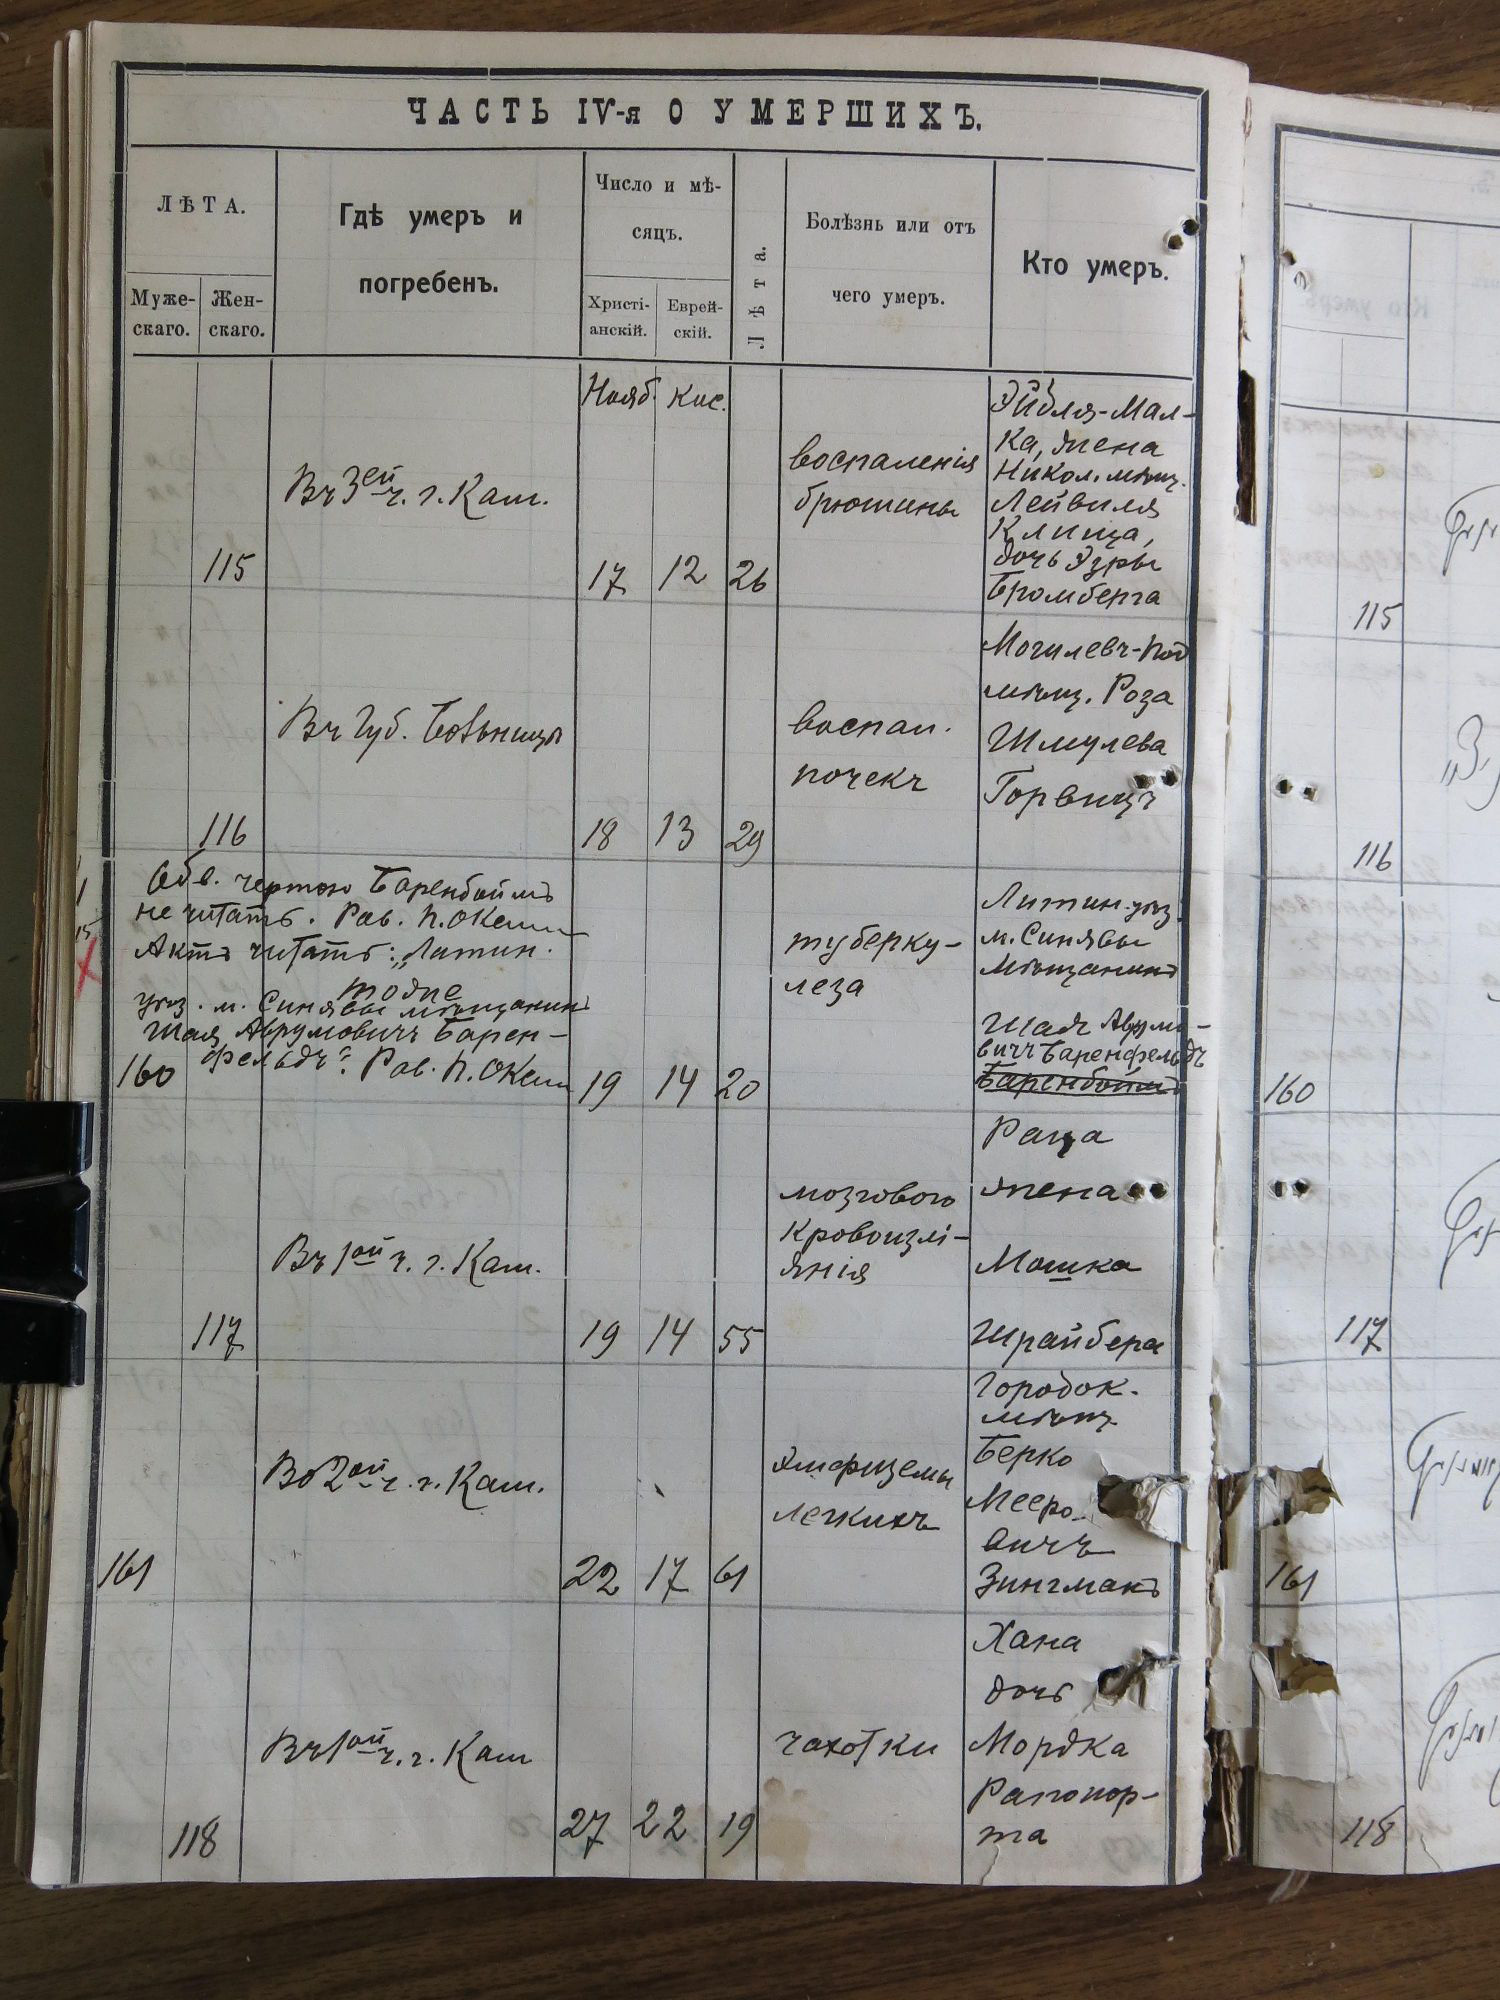 ЧАСТЬ IV-я О УМЕРШИХЪ.
ЛѢТА.
Муже-
скаго.
Жен-
скаго.
Гдѣ умеръ и
погребенъ.
Число и мѣ-
сяцъ.
Христі-
анскій.
Еврей-
скій.
Лѣта.
Болѣзнь или отъ
чего умеръ.
Кто умеръ.
Нояб. Кис.
115
Въ 3ей ч. г. Кам.
17 12 26
воспаленія
брюшины
Эйдля-Мал-
ка, жена
Никол. мѣщ.
Лейвиля
Клища,
дочь Эзры
Бромберга
116
Въ Губ. Больницѣ
18 13 29
воспал.
почекъ
Могилевъ-Под
мѣщ. Роза
Шмулева
Горвицъ
Обв. чертою Баренбоймъ
не читать. Рав. П. Окс
Актъ читать: „Латин.
уѣз. м. Синявы мѣщанинъ
Шая Аврумовичъ Барен-
фельдъ". Рав. П. Окс
тоже
160
19 14 20
туберку-
леза
Литин. уѣз.
м. Синявы
мѣщанинъ
Шая Аврумо-
вичъ Баренфельдъ
Баренбоймъ
117
Въ 1ой ч. г. Кам.
19 14 55
мозгового
кровоизлі-
янія
Раца
жена
Мошка
Шрайбера
161
Во 2ой ч. г. Кам.
22 17 61
эмфиземы
легкихъ
Городок.
мѣщ.
Берко
Мееро-
вичъ
Зингманъ
118
Въ 1ой ч. г. Кам
27 22 19
чахотки
Хана
дочь
Мордка
Рапопор-
та
115
116
160
117
161
118